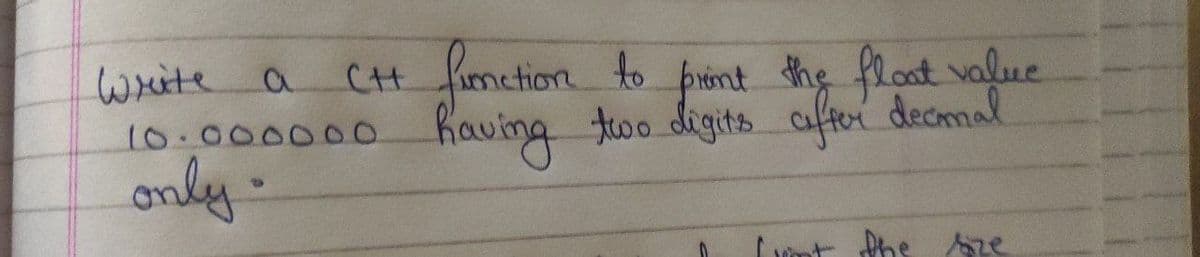 Write a C++ function to print the float value
10.000000 having two digits after decimal
only.
print the size